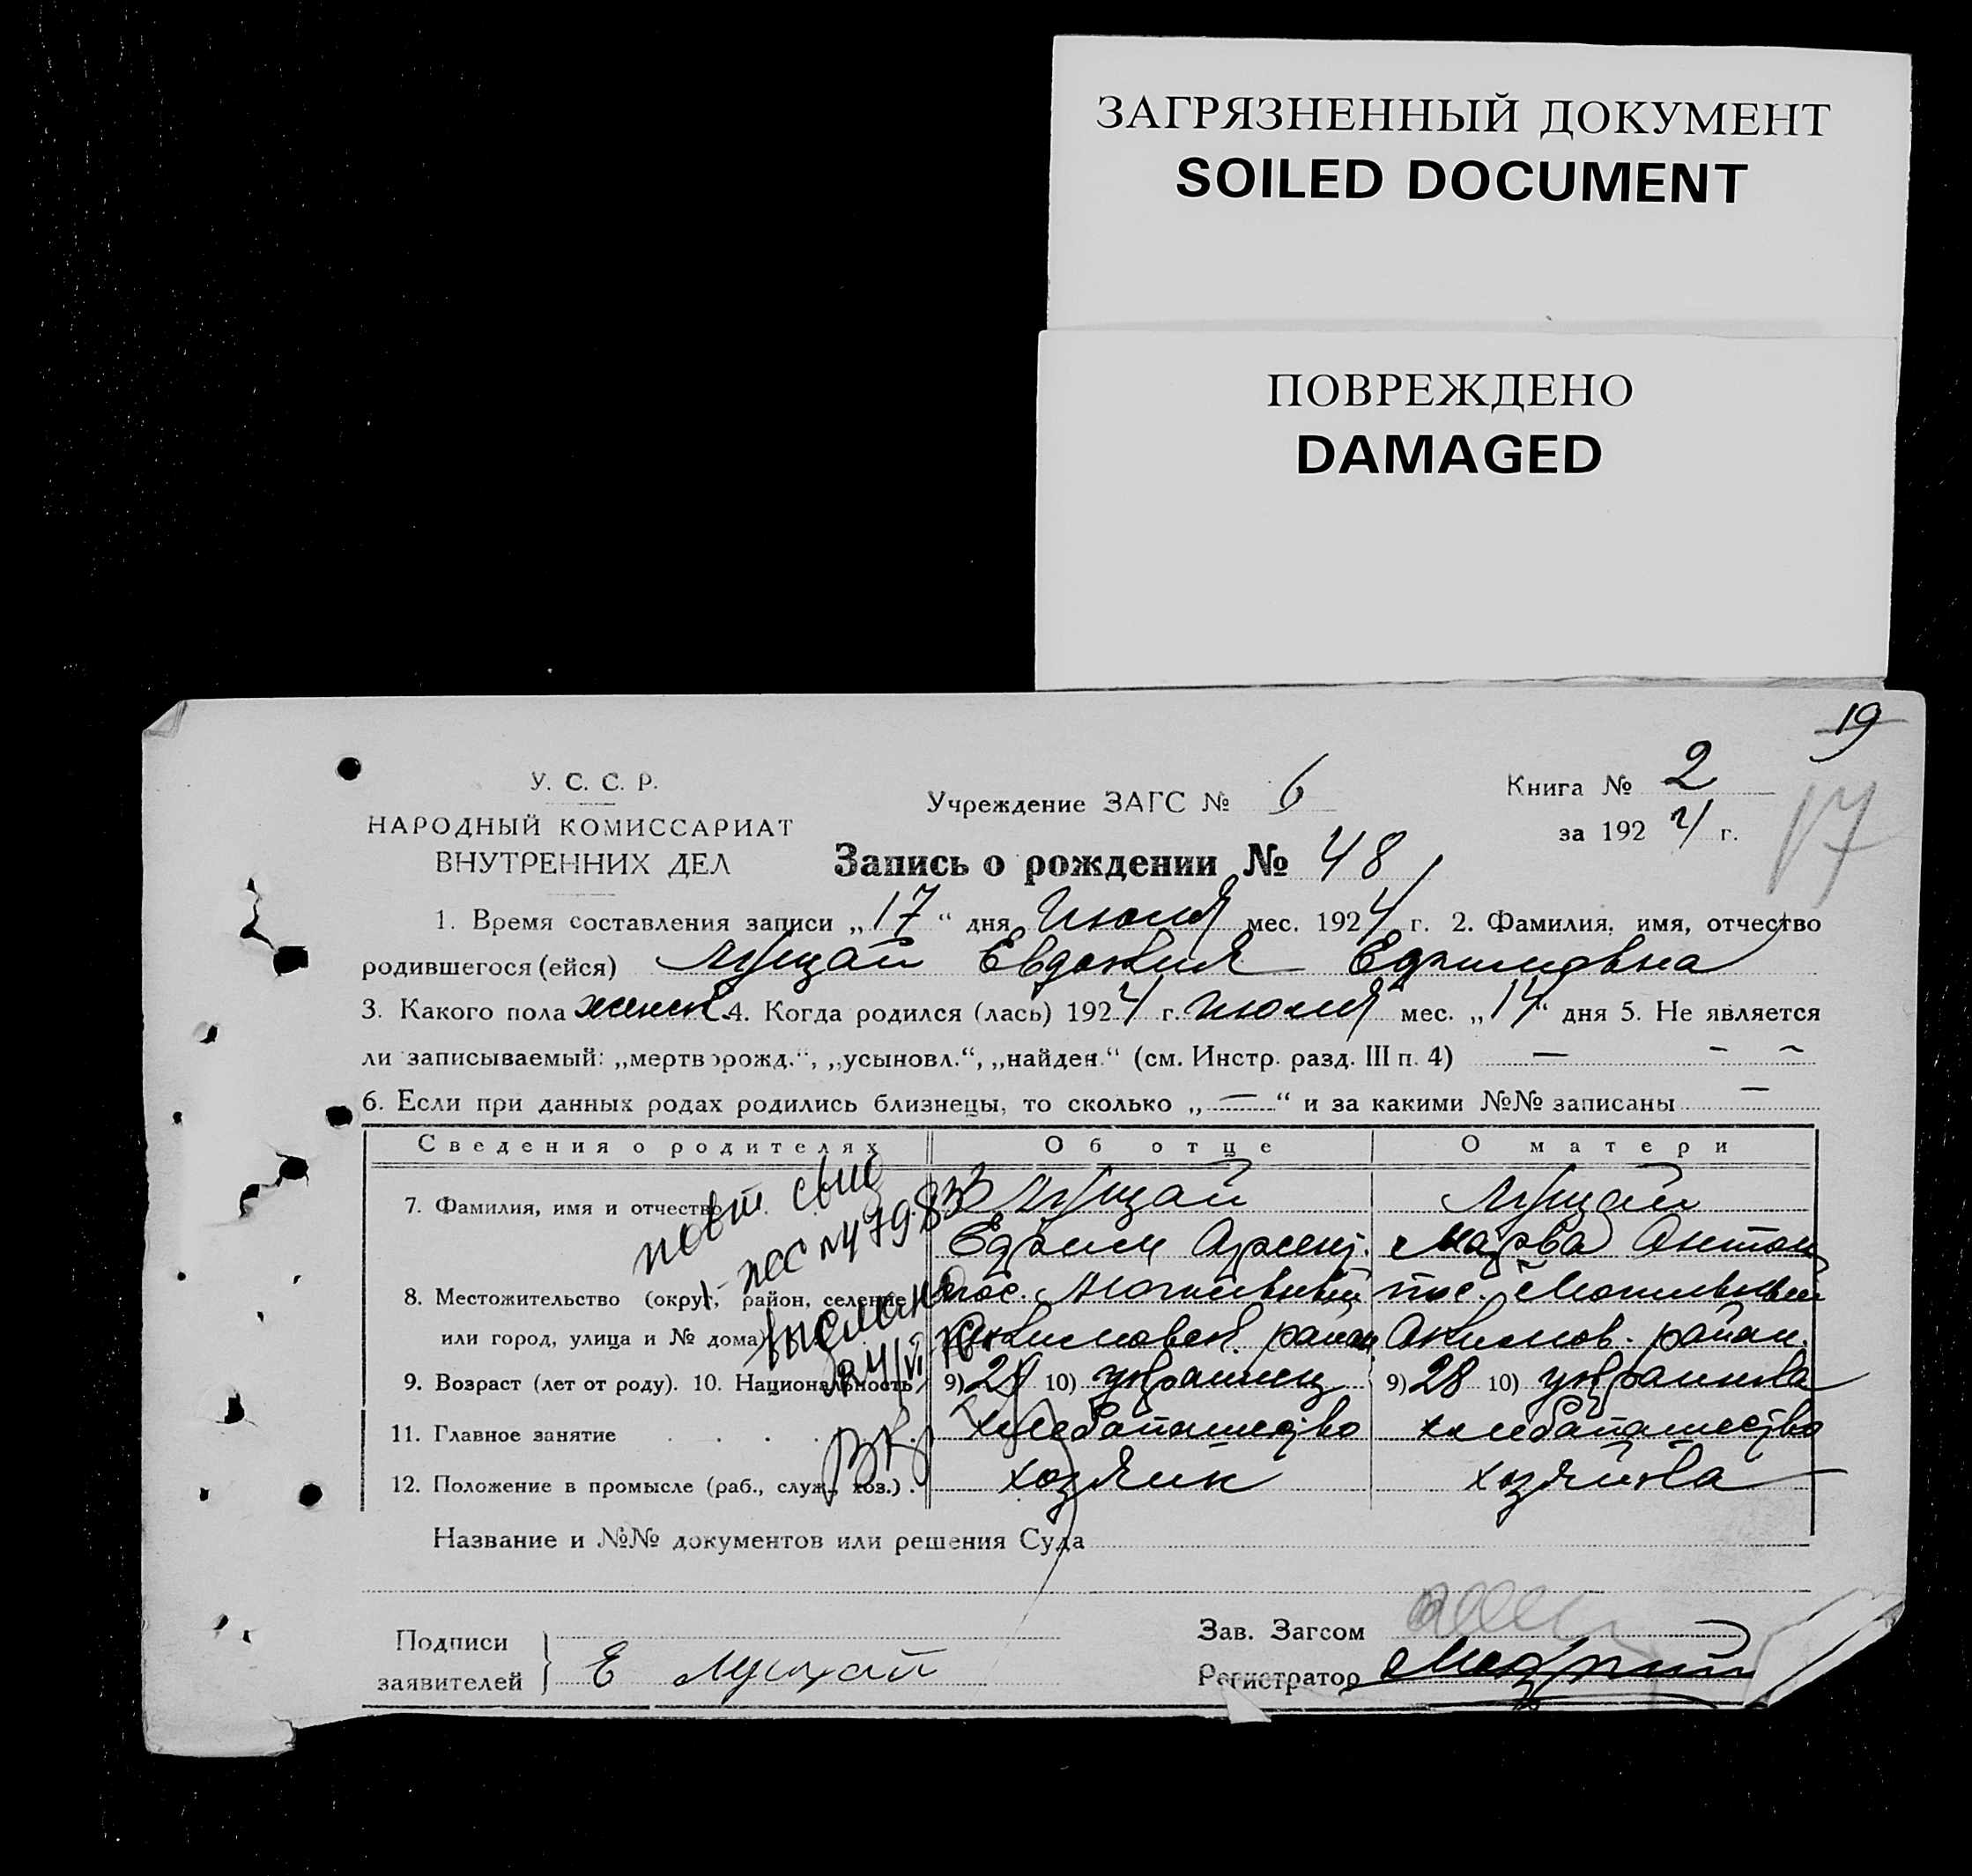 ЗАГРЯЗНЕННЫЙ ДОКУМЕНТ
SOILED DOCUMENT
ПОВРЕЖДЕНО
DAMAGED
19
17
У. С. С. Р.
НАРОДНЫЙ КОМИССАРИАТ
ВНУТРЕННИХ ДЕЛ
Учреждение ЗАГС № 6
Книга № 2
за 1924 г.
Запись о рождении № 48
1. Время составления записи „17“ дня Июля мес. 1924 г. 2. Фамилия, имя, отчество
родившегося (ейся) Лущай Евдокия Ефимовна
3. Какого пола женск. 4. Когда родился (лась) 1924 г. июля мес. „14“ дня 5. Не является
ли записываемый: „мертворожд.“, „усыновл.“, „найден.“ (см. Инстр. разд. III п. 4) — - ~
6. Если при данных родах родились близнецы, то сколько „—“ и за какими №№ записаны —
Сведения о родителях Об отце О матери
7. Фамилия, имя и отчество Лущай Лущай
Ефим Марва Антон
8. Местожительство (округ, район, селение пос. Могильный пос. Могильный
или город, улица и № дома) Акимовск. район Акимов. район.
9. Возраст (лет от роду). 10. Национальность 9) 29 10) украинец 9) 28 10) украинка
11. Главное занятие . . . хлебопашество хлебопашество
12. Положение в промысле (раб., служ., хоз.) . хозяин хозяйка
повт свид
выслано
Название и №№ документов или решения Суда
Подписи
заявителей Е Лущай
Зав. Загсом
Регистратор